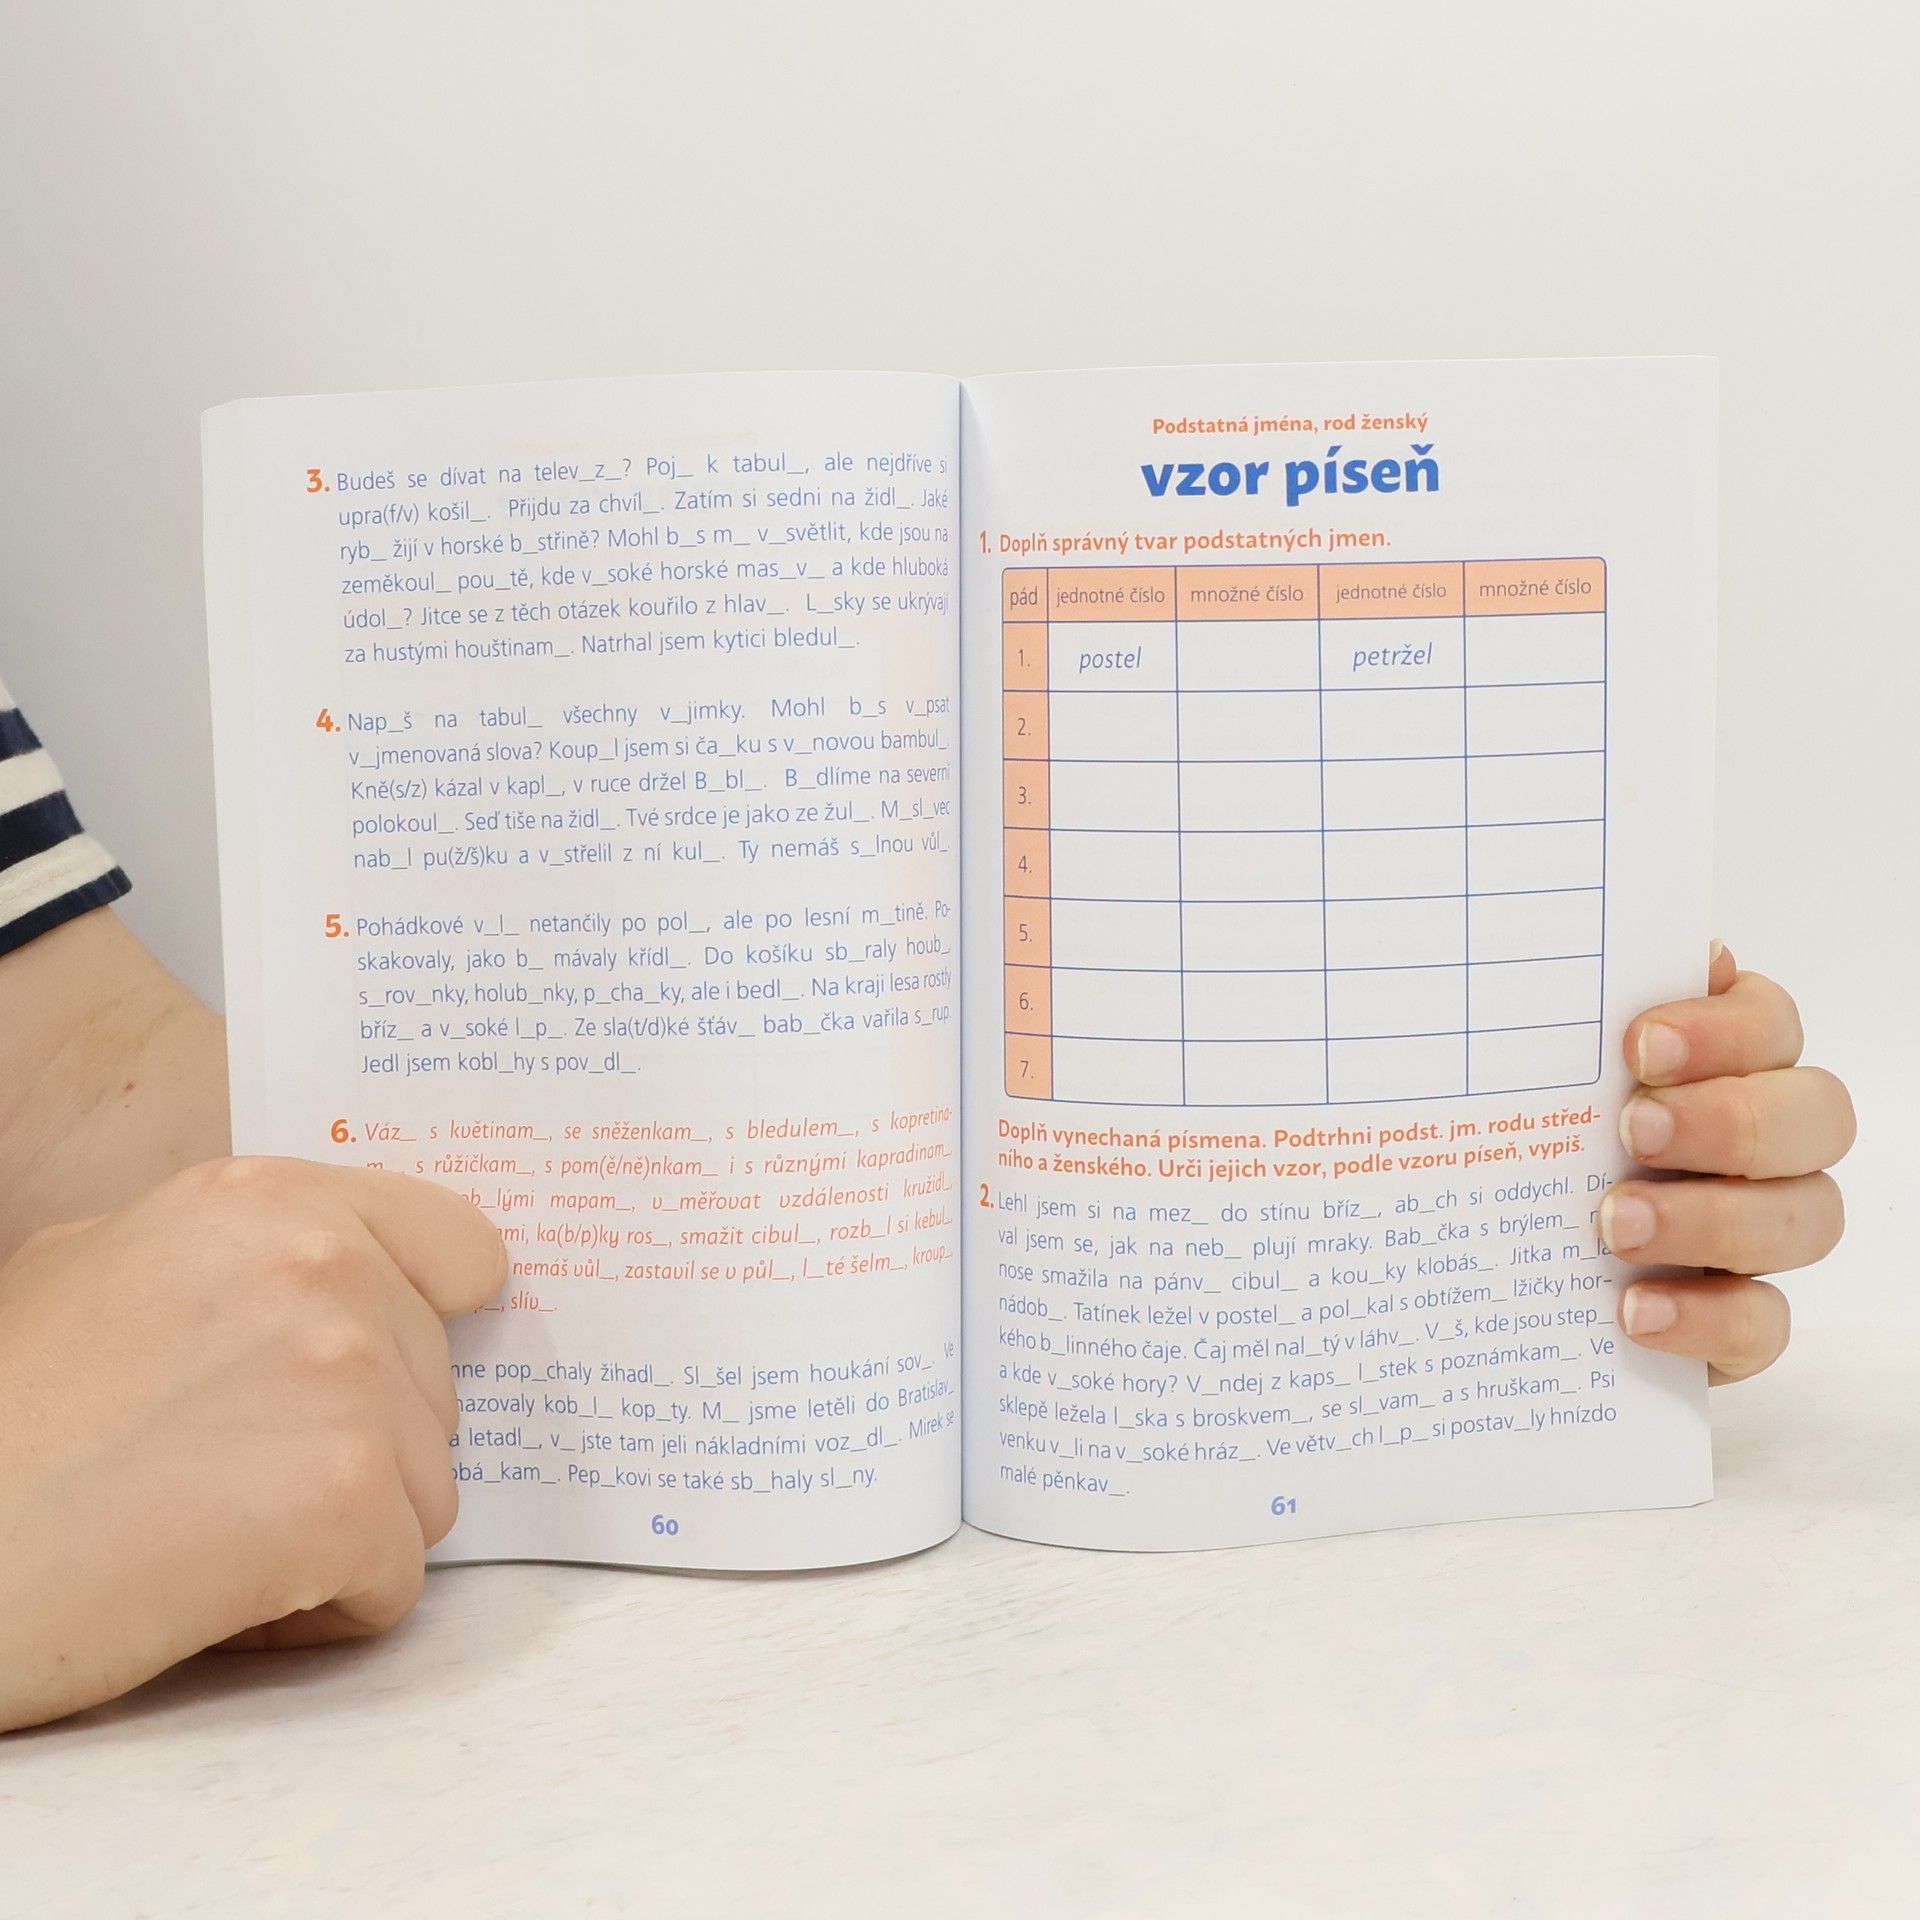 3. Budeš se dívat na telev_z_? Poj_ k tabul_, ale nejdříve si
upra(f/v) košil_. Přijdu za chvíl_. Zatím si sedni na židl_. Jaké
ryb_ žijí v horské b_střině? Mohl b_s m_ v_světlit, kde jsou na
zeměkoul_ pou_tě, kde v_soké horské mas_v_ a kde hluboká
údol_? Jitce se z těch otázek kouřilo z hlav_. L_sky se ukrývají
za hustými houštinam_. Natrhal jsem kytici bledul_.
4. Nap_š na tabul_ všechny v_jimky. Mohl b_s v_psat
v_jmenovaná slova? Koup_l jsem si ča_ku s v_novou bambul_.
Kně(s/z) kázal v kapl_, v ruce držel B_bl_. B_dlíme na severní
polokoul_. Seď tiše na židl_. Tvé srdce je jako ze žul_. M_sl_vec
nab_l pu(ž/š)ku a v_střelil z ní kul_. Ty nemáš s_lnou vůl_.
5. Pohádkové v_l_ netančily po pol_, ale po lesní m_tině. Po-
skakovaly, jako b_ mávaly křídl_. Do košíku sb_raly houb_
s_rov_nky, holub_nky, p_cha_ky, ale i bedl_. Na kraji lesa rostly
bříz_ a v_soké l_p_. Ze sla(t/d)ké šťáv_ bab_čka vařila s_rup.
Jedl jsem kobl_hy s pov_dl_.
6. Váz_ s květinam_, se sněženkam_, s bledulem_, s kopretina-
m_, s růžičkam_, s pom(ě/ně)nkam_ i s různými kapradinam_
b_lými mapam_, v_měřovat vzdálenosti kružidl_
ami, ka(b/p)ky ros_, smažit cibul_, rozb_l si kebul_
nemáš vůl_, zastavil se v půl_, l_té šelm_, kroup_
_, slív_.
pop_chaly žihadl_. Sl_šel jsem houkání sov_. Ve
kob_l_ kop_ty. M_ jsme letěli do Bratislav_
a letadl_, v_ jste tam jeli nákladními voz_dl_. Mirek se
kam_. Pep_kovi se také sb_haly sl_ny.
60
Podstatná jména, rod ženský
vzor píseň
1. Doplň správný tvar podstatných jmen.
pád jednotné číslo množné číslo jednotné číslo množné číslo
1. postel petržel
2.
3.
4.
5.
6.
7.
Doplň vynechaná písmena. Podtrhni podst. jm. rodu střed-
ního a ženského. Urči jejich vzor, podle vzoru píseň, vypiš.
2. Lehl jsem si na mez_ do stínu bříz_, ab_ch si oddychl. Dí-
val jsem se, jak na neb_ plují mraky. Bab_čka s brýlem_
nose smažila na pánv_ cibul_ a kou_ky klobás_. Jitka m_la
nádob_. Tatínek ležel v postel_ a pol_kal s obtížem_ lžičky hor-
kého b_linného čaje. Čaj měl nal_tý v láhv_. V_š, kde jsou step_
a kde v_soké hory? V_ndej z kaps_ l_stek s poznámkam_. Ve
sklepě ležela l_ska s broskvem_, se sl_vam_ a s hruškam_. Psi
venku v_li na v_soké hráz_. Ve větv_ch l_p_ si postav_ly hnízdo
malé pěnkav_.
61